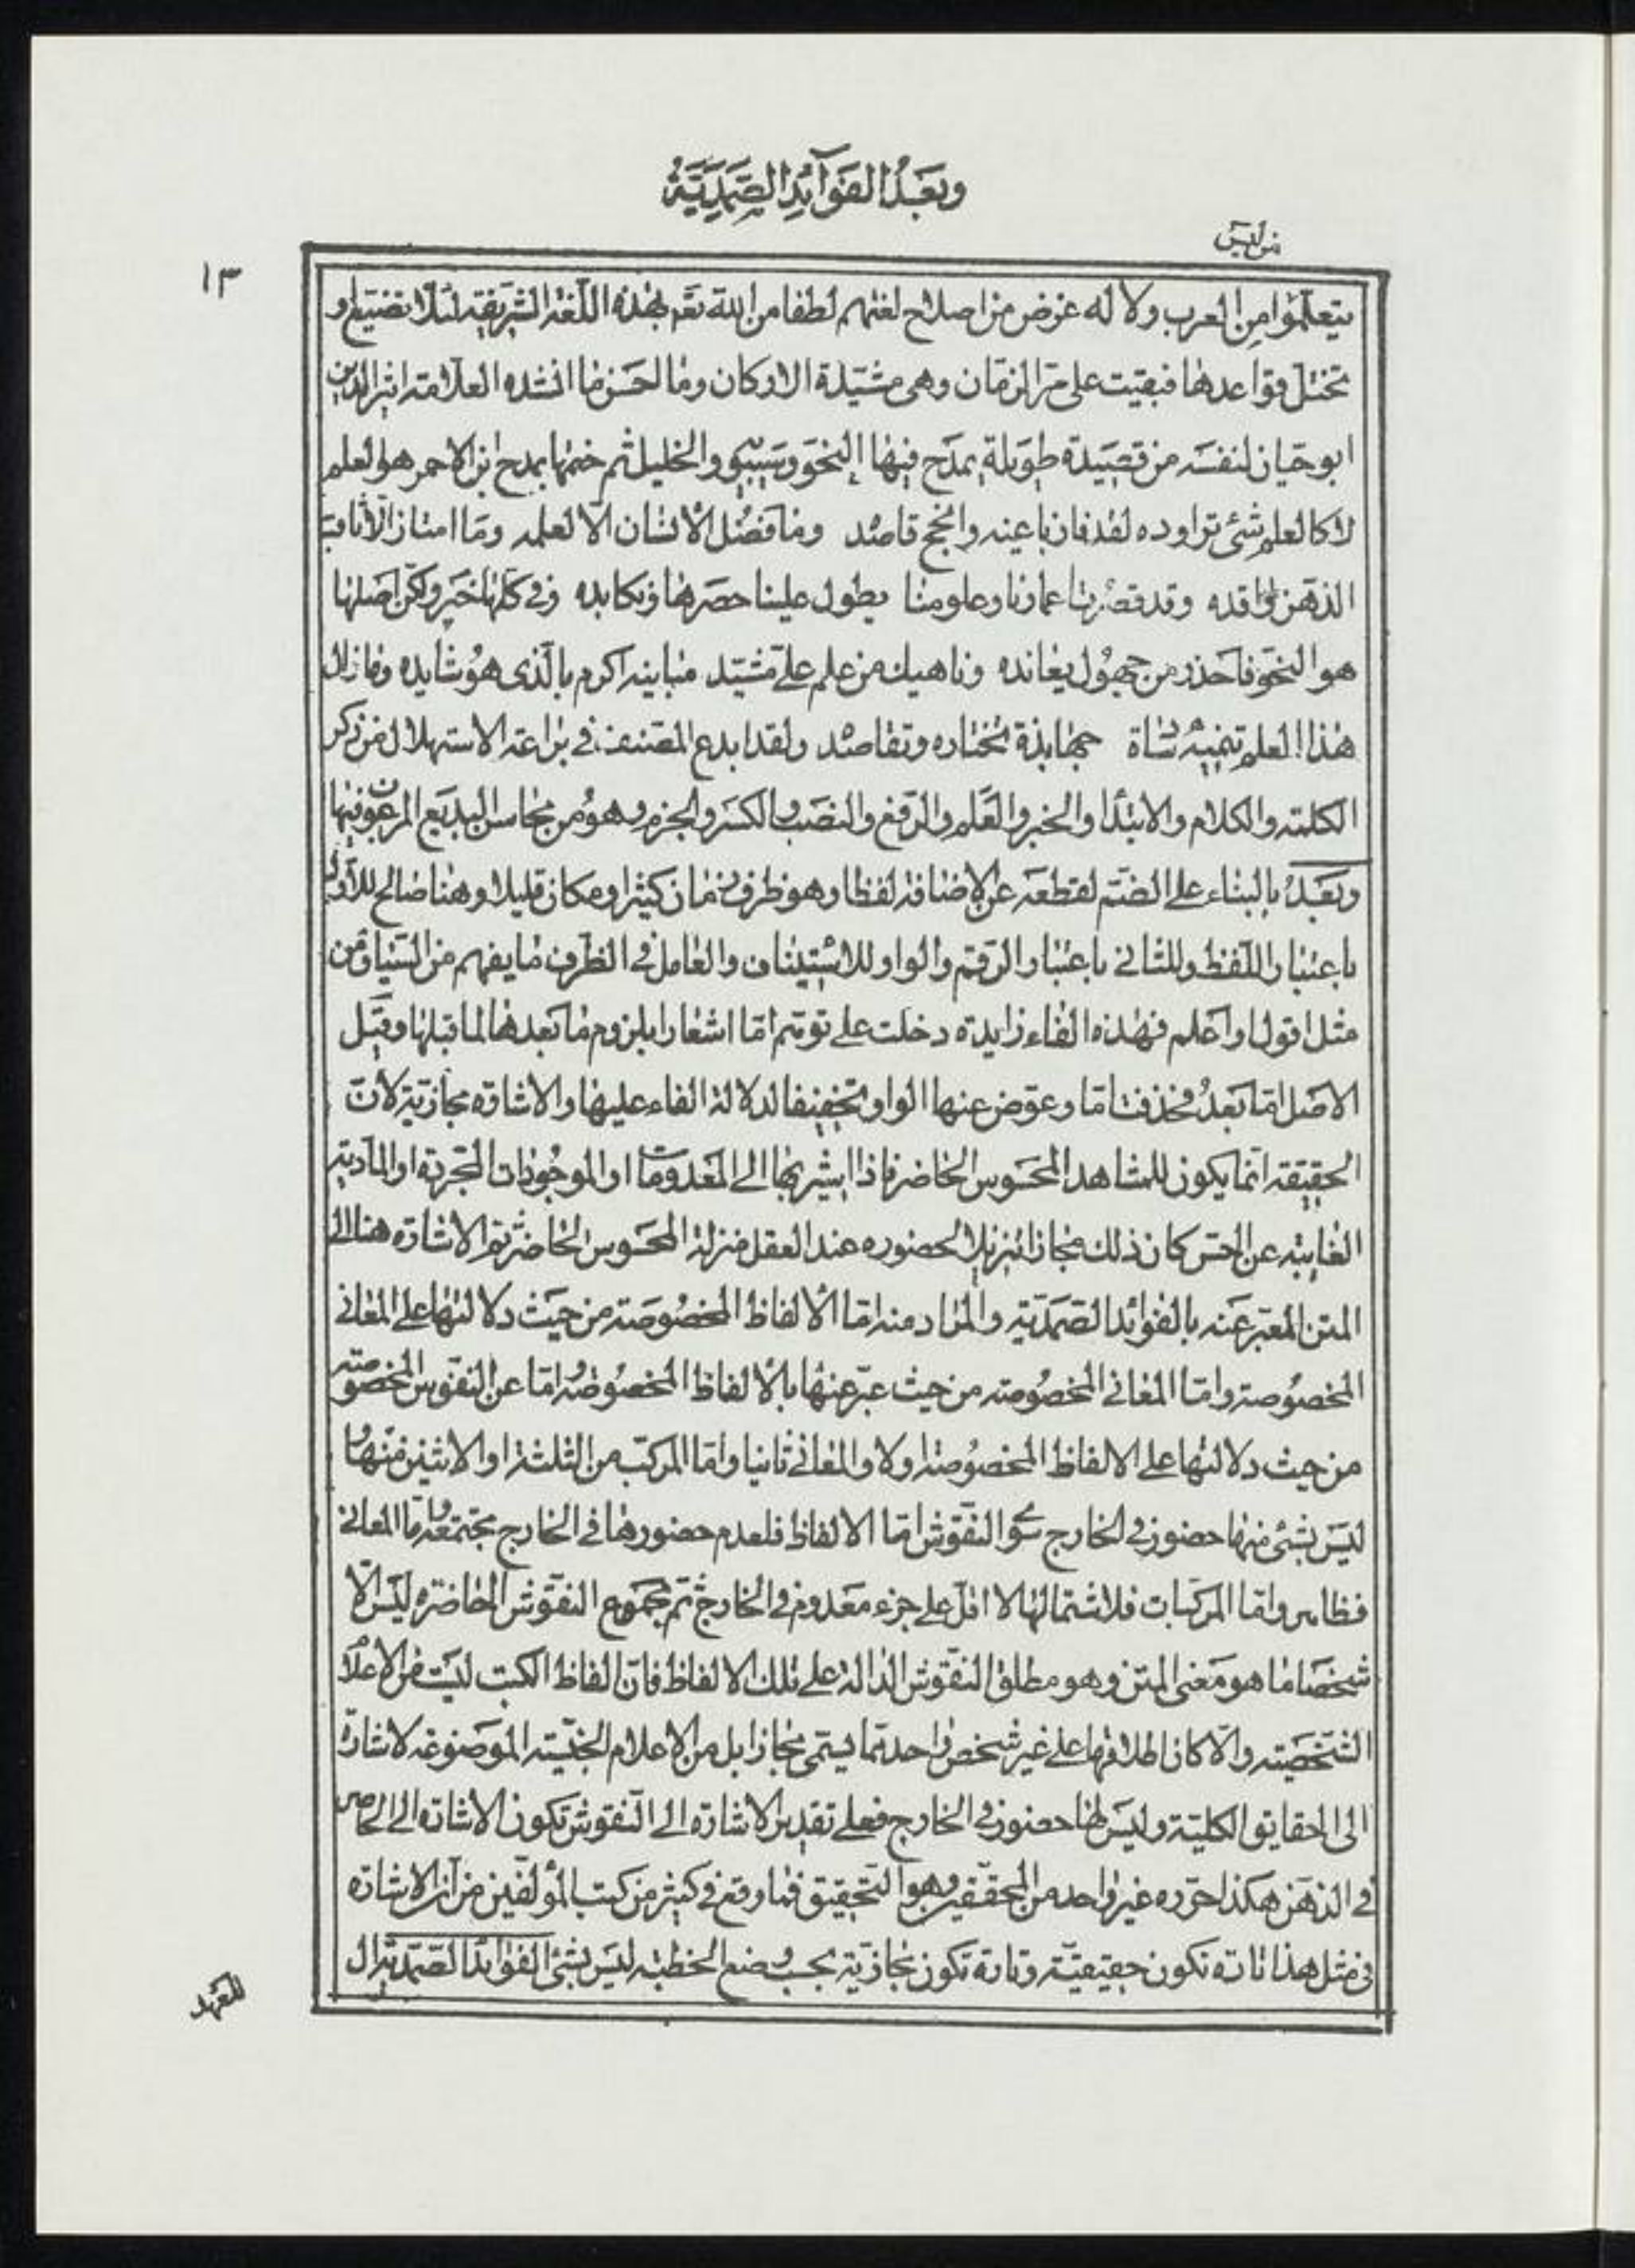 وبعد الفوائد الصمدية
من ليس
١٣
يتعلموا من العرب ولا له غرض من اصلاح لغتهم لطفا من الله تعم بهذه اللغة الشريفة لئلا تضيع او
تختل قواعدها فبقيت على مر الزمان وهى مشيدة الاركان وما احسن ما انشده العلامة اثير الدين
ابو حيان لنفسه من قصيدة طويلة يمدح فيها النحو وسيبويه والخليل ثم ختمها بمدح ابن الاحمر هو العلم
لا كالعلم شئ تراوده لقد فاز باغيه وانجح قاصده وما فضل الانسان الا لعلمه وما امتاز الا ثاقب
الذهن واقده وقد قصرت اعمارنا وعلومنا يطول علينا حصرها ونكابده وفى كلها خير ولكن اصلها
هو النحو فاحذر من جهول يعانده وناهيك من علم على مشيد مبانيه اكرم بالذى هو شايده وما زال
هذا العلم تنميه سادة جهابذة تختاره وتعاضده ولقد ابدع المصنف فى براعة الاستهلال من ذكر
الكلمة والكلام والابتداء والخبر والعلم والرفع والنصب والكسر والجزم وهو من محاسن البديع المرغوب فيها
وبعد بالبناء على الضم لقطعه عن الاضافة لفظا وهو ظرف زمان كثيرا ومكان قليلا وهنا صالح للاول
باعتبار اللفظ وللثانى باعتبار الرقم والواو للاستيناف والعامل فى الظرف ما يفهم من السياق من
مثل اقول او اعلم فهذه الفاء زايدة دخلت على توهم اما اشعارا بلزوم ما بعدها لما قبلها وقيل
الاصل اما بعد فحذفت اما وعوض عنها الواو تخفيفا لدلالة الفاء عليها والاشارة مجازية لان
الحقيقة انما يكون للمشاهد المحسوس الحاضر فاذا اشير بها الى المعدومات او الموجودات المجردة او المادية
الغايبة عن الحس كان ذلك مجازا تنزيلا لحضوره عند العقل منزلة المحسوس الحاضر ثم الاشارة هنا الى
المتن المعبر عنه بالفوائد الصمدية والمراد منه اما الالفاظ المخصوصة من حيث دلالتها على المعانى
المخصوصة واما المعانى المخصوصة من حيث عبر عنها بالالفاظ المخصوصة اما عن النقوش المخصوصة
من حيث دلالتها على الالفاظ المخصوصة اولا والمعانى ثانيا واما المركب من الثلثة او الاثنين منها و
ليس بشئ منها حضور فى الخارج سوى النقوش اما الالفاظ فلعدم حضورها فى الخارج مجتمعة واما المعانى
فظاهر واما المركبات فلاشتمالها لا اقل على جزء معدوم فى الخارج ثم مجموع النقوش الحاضرة ليس الا
شخصا ما هو معنى المتن وهو مطلق النقوش الدالة على تلك الالفاظ فان الفاظ الكتب ليست من الاعلام
الشخصية والا كان اطلاقها على غير شخص واحد مما يسمى مجازا بل من الاعلام الجنسية الموضوعة لاشارة
الى الحقايق الكلية وليس لها حضور فى الخارج فعلى تقدير الاشارة الى النقوش تكون الاشارة الى الحاضر
فى الذهن هكذا حرره غير واحد من المحققين وهو التحقيق فما وقع فى كثير من كتب المؤلفين من ان الاشارة
فى مثل هذا تارة تكون حقيقية وتارة تكون مجازية بحسب وضع الخطبة ليس بشئ الفوائد الصمدية ال
للعهد